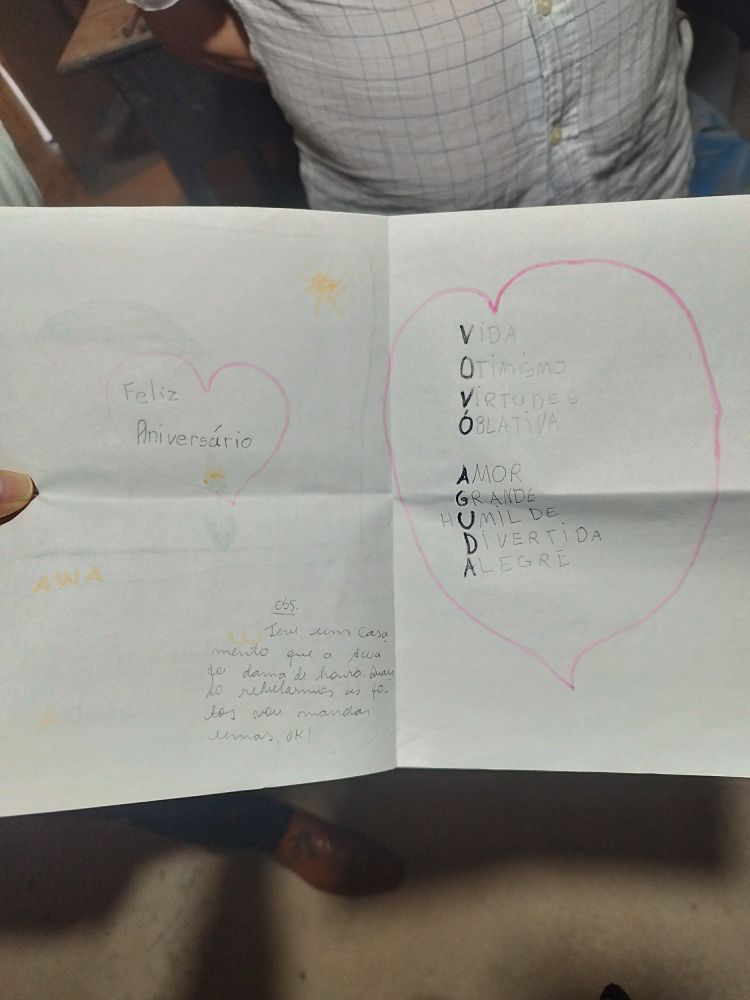 Feliz
Aniversário
AWA
obs.
Teve um casa
mento que a Awa
foi dama de honra. Quan
do rebelarmos as fo-
tos vou mandar
umas, OK!
VIDA
OTIMISMO
VIRTUDES
ÓBLATIVA
AMOR
GRANDE
HUMILDE
DIVERTIDA
ALEGRE